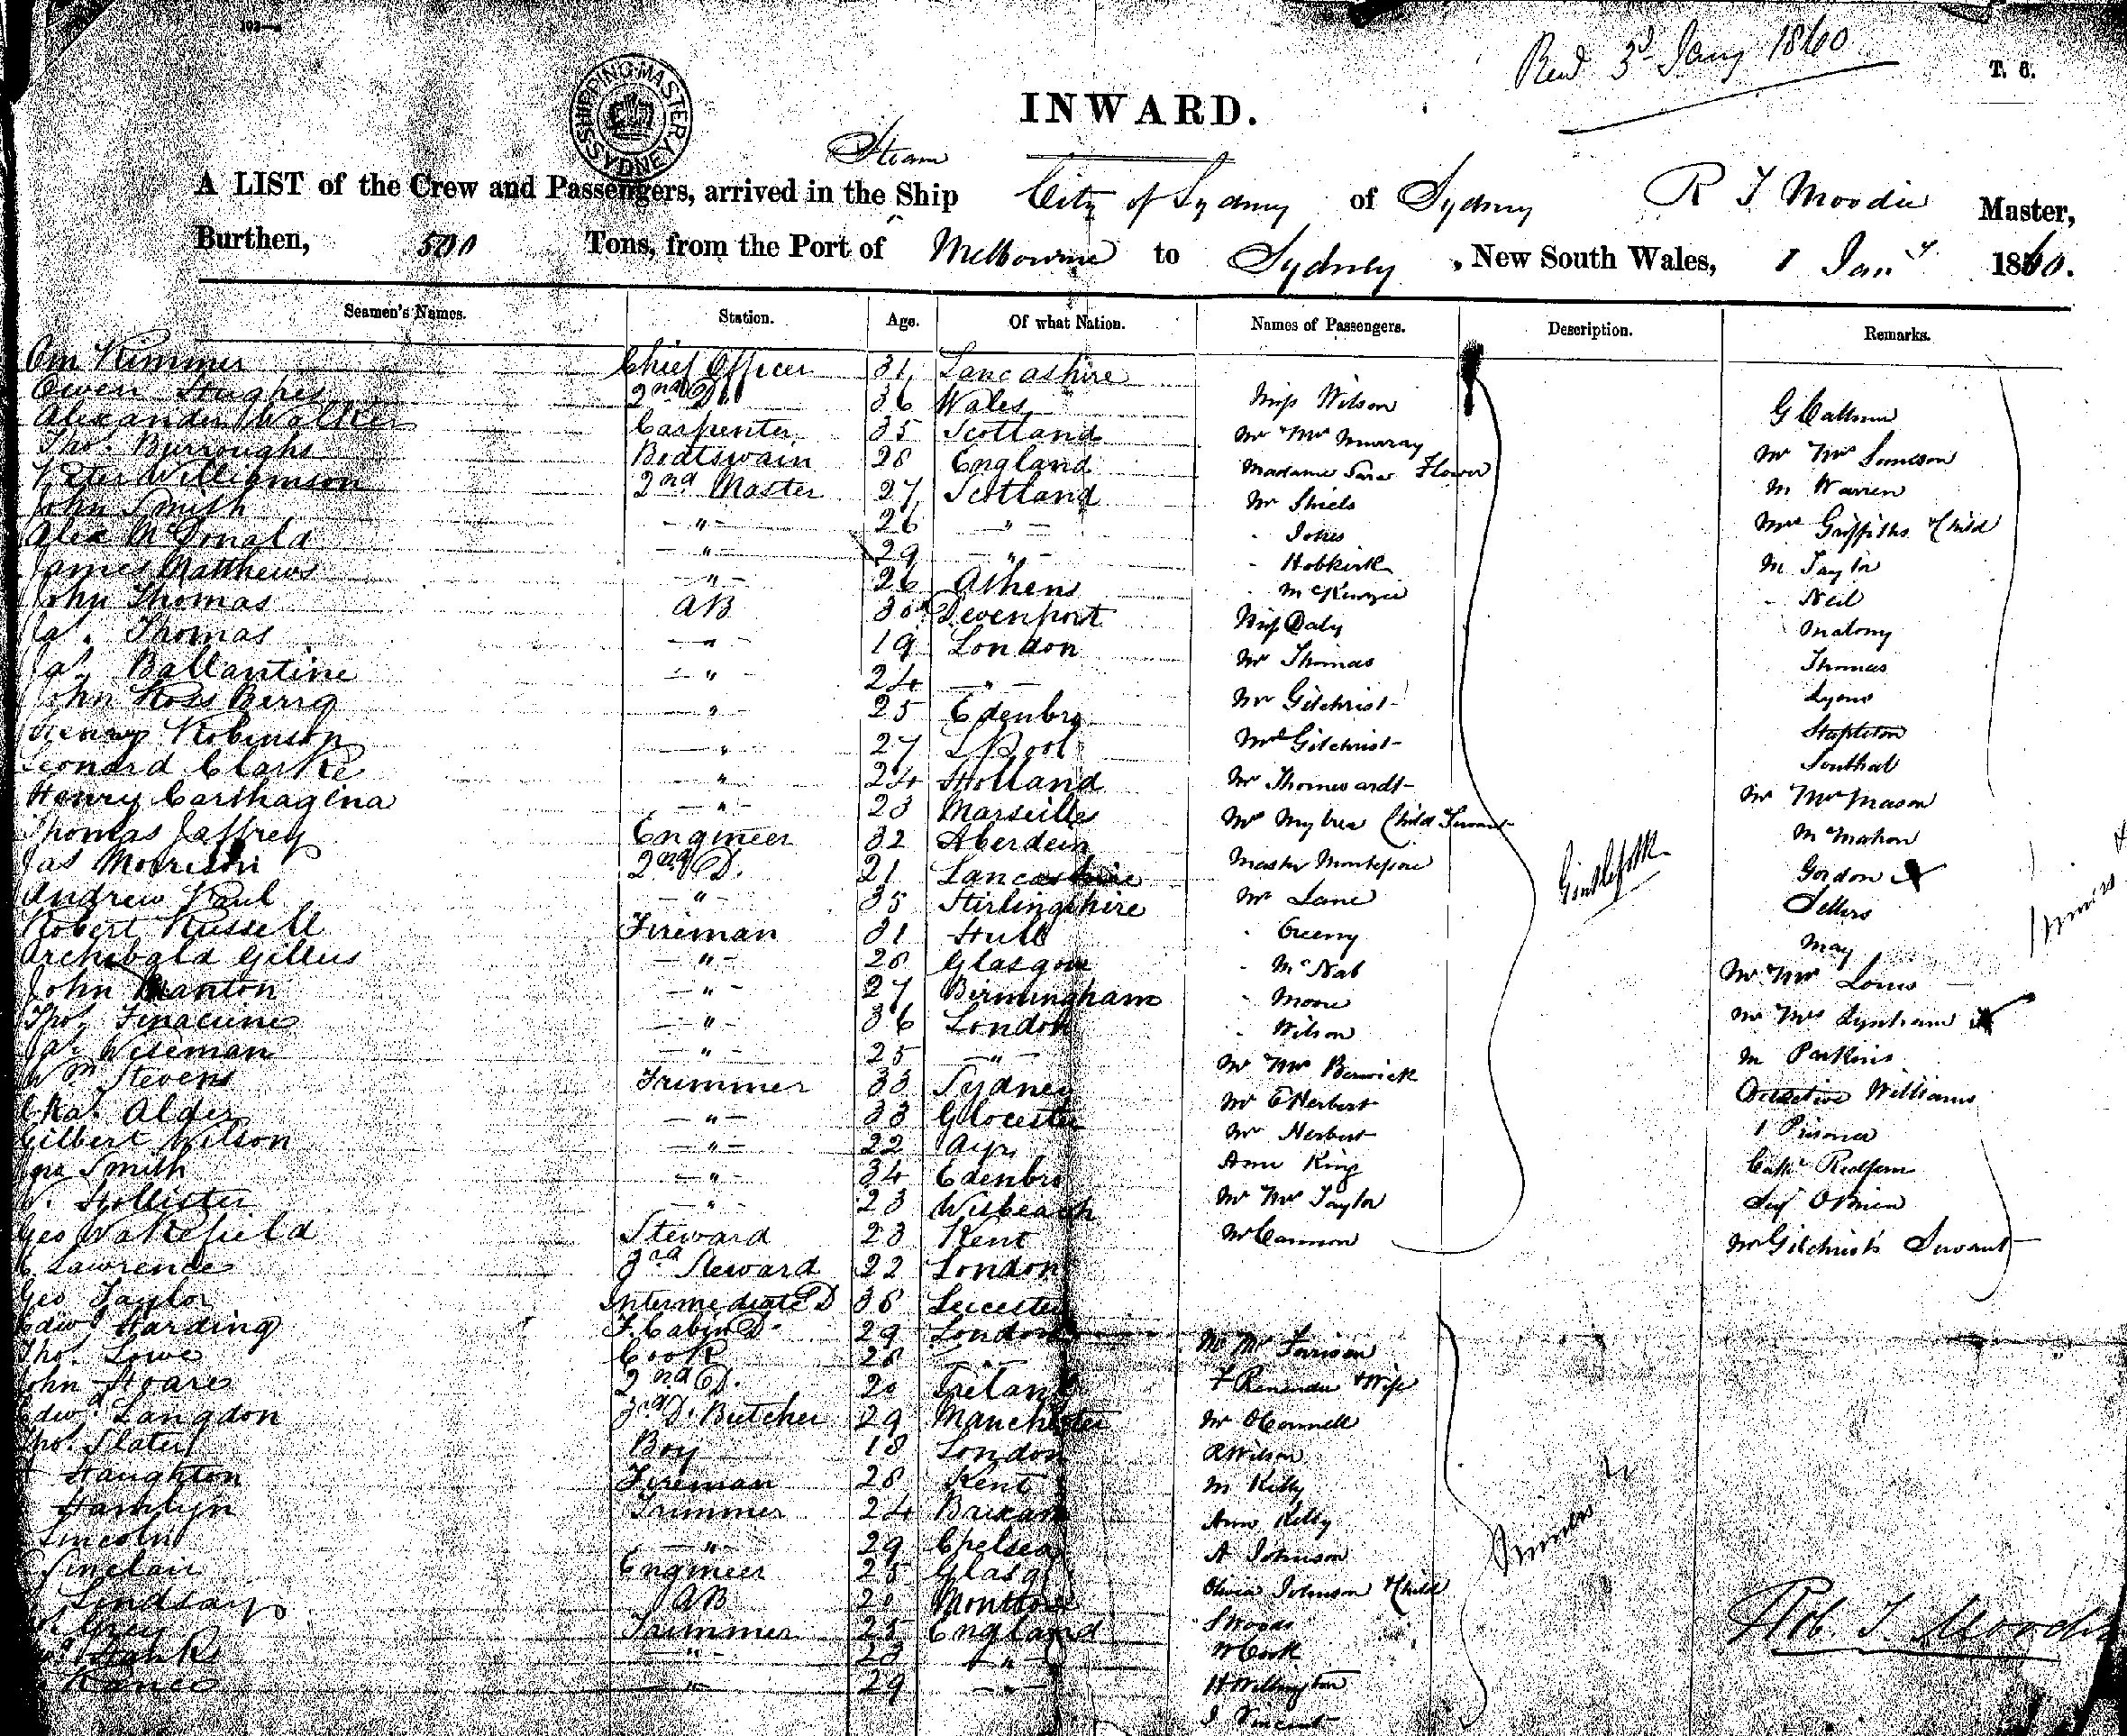 Recd 3d Jany 1860
T. 6.
SHIPPING MASTER SYDNEY
INWARD.
Steam
A LIST of the Crew and Passengers, arrived in the Ship City of Sydney of Sydney R T Moodie Master,
Burthen, 500 Tons, from the Port of Melbourne to Sydney, New South Wales, 1 Jany 1860.
Seamen's Names. Station. Age. Of what Nation. Names of Passengers. Description. Remarks.
Kimmer Chief Officer 31 Lancashire
Owen Hughes 2nd Do. 36 Wales Miss Wilson
Alexander Walker Carpenter 35 Scotland Mr Mrs Murray
Tho. Burroughs Boatswain 28 England Madame Sara Flower
Peter Williamson 2nd Master 27 Scotland Mr Shiels
John Smith " 26 " Jones
Alex McDonald " 29 " Hobkirk
James Matthews " 26 Athens McKenzie
John Thomas AB 30 Devenport Miss Daly
Ja. Thomas " 19 London Mr Thomas
Ja. Ballantine " 24 " Mr Gilchrist
John Ross Berrg " 25 Edenbro Mrs Gilchrist
Henry Robinson " 27 LPool
Leonard Clarke " 24 Holland
Henry Carthagena " 23 Marseilles Child Servant
Thomas Jaffrey Engineer 32 Aberdein Master Montefiore
Jas Morrison 2nd D. 21 Lancashire Mr Lane
Andrew Paul " 35 Stirlingshire
Robert Russell Fireman 31 Hull McNab
Archibald Gillies " 28 Glasgow Moore
John Manton " 27 Birmingham Wilson
Tho. " 36 London Mr Mrs Berwick
Ja. Wiseman " 25 " Mr E Herbert
Wm Stevens Trimmer 33 Sydney Mr Herbert
Cha. Alder " 33 Glocester Ann King
Gilbert Wilson " 22 Ayr Mr Mrs Taylor
Jno Smith " 34 Edenbro Mr Cannon
Hollister " 23 Wisbeach
Geo Wakefield Steward 23 Kent
C Lawrence 3rd Steward 22 London
Geo Taylor Intermediate D 36 Leicester
Edwd Harding F. Cabin D. 29 London
Tho. Lowe Cook 28 "
John Hoare 2nd D. 20 Ireland Wife
Edwd. Langdon 3rd D. Butcher 29 Manchester Mr OConnell
Tho. Slater Boy 18 London R Wilson
Haughton Fireman 28 Kent M Kelly
Hamlyn Trimmer 24 Brixam Ann Kelly
Lincoln " 29 Chelsea A Johnson
Sinclair Engineer 25 Glasg Olivia Johnson & Child
Lindsay AB 20 Montrose S Woods
Trimmer 25 England W Cook
Hawks " 23 " H Willington
Rance " 29 " J Vincent
G Calhoun
Mr Mrs
M Warren
Mrs Griffiths & Child
M Taylor
Neil
Thomas
Lyons
Stapleton
Southal
Mr Mrs Mason
McMahon
Gordon
Sellers
May
Mr Mrs
Mr Mrs
M Parkins
Detective Williams
1 Prisoner
Capt Redfern
OBrien
Mr Gilchrist's Servant
Gentlefolk
Rob. T. Moodie